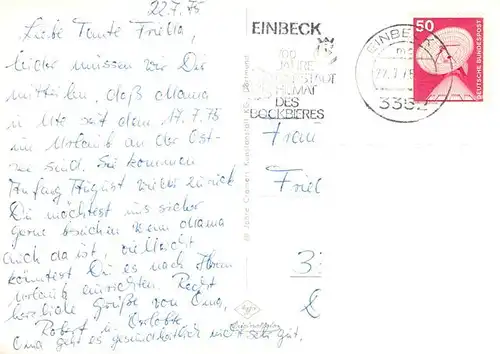 22.7.75
Liebe Tante Frieda,
leider müssen wir Dir
mitteilen, daß Mama
u. Ute seit dem 17.7.75
im Urlaub an der Ost-
see sind. Sie kommen
Anfang August wieder zurück
Du möchtest uns sicher
gerne besuchen wenn Mama
auch da ist, vielleicht
könntest Du es nach Ihrem
Urlaub einrichten. Recht
herzliche Grüße von Oma,
Robert u.
Oma geht es gesundheitlich nicht sehr gut.
EINBECK
JAHRE
HEIMAT
DES
BOCKBIERES
EINBECK
3352
50
DEUTSCHE BUNDESPOST
Frau
Fried
3
Cramers Kunstanstalt KG, Dortmund